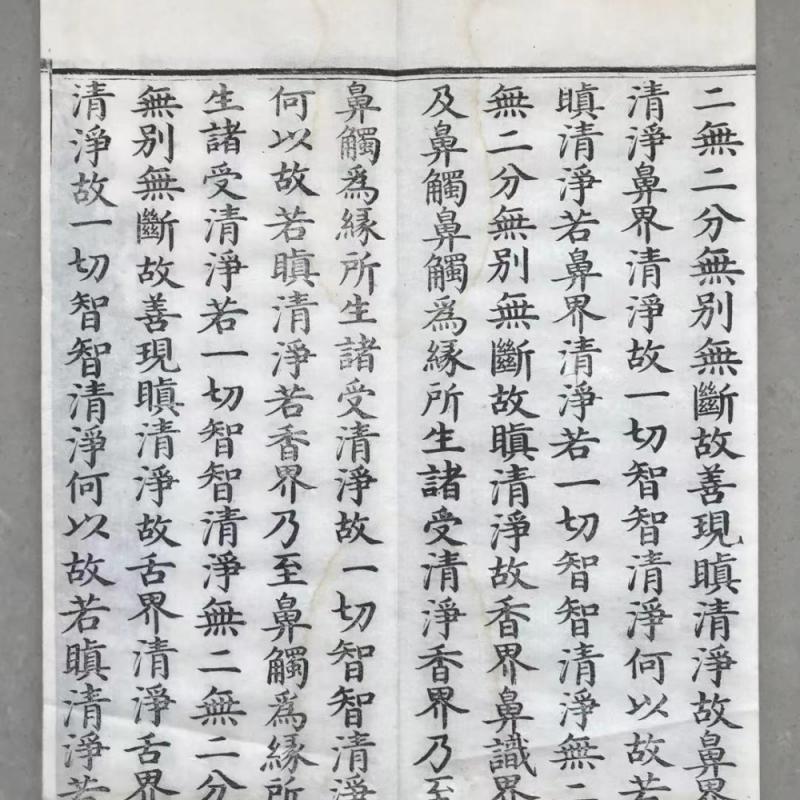 二無二分無别無斷故善現瞋清淨故鼻界
清淨鼻界清淨故一切智智清淨何以故若
瞋清淨若鼻界清淨若一切智智清淨無二
無二分無别無斷故瞋清淨故香界鼻識界
及鼻觸鼻觸爲緣所生諸受清淨香界乃至
鼻觸爲緣所生諸受清淨故一切智智清淨
何以故若瞋清淨若香界乃至鼻觸爲緣所
生諸受清淨若一切智智清淨無二無二分
無别無斷故善現瞋清淨故舌界清淨舌界
清淨故一切智智清淨何以故若瞋清淨若